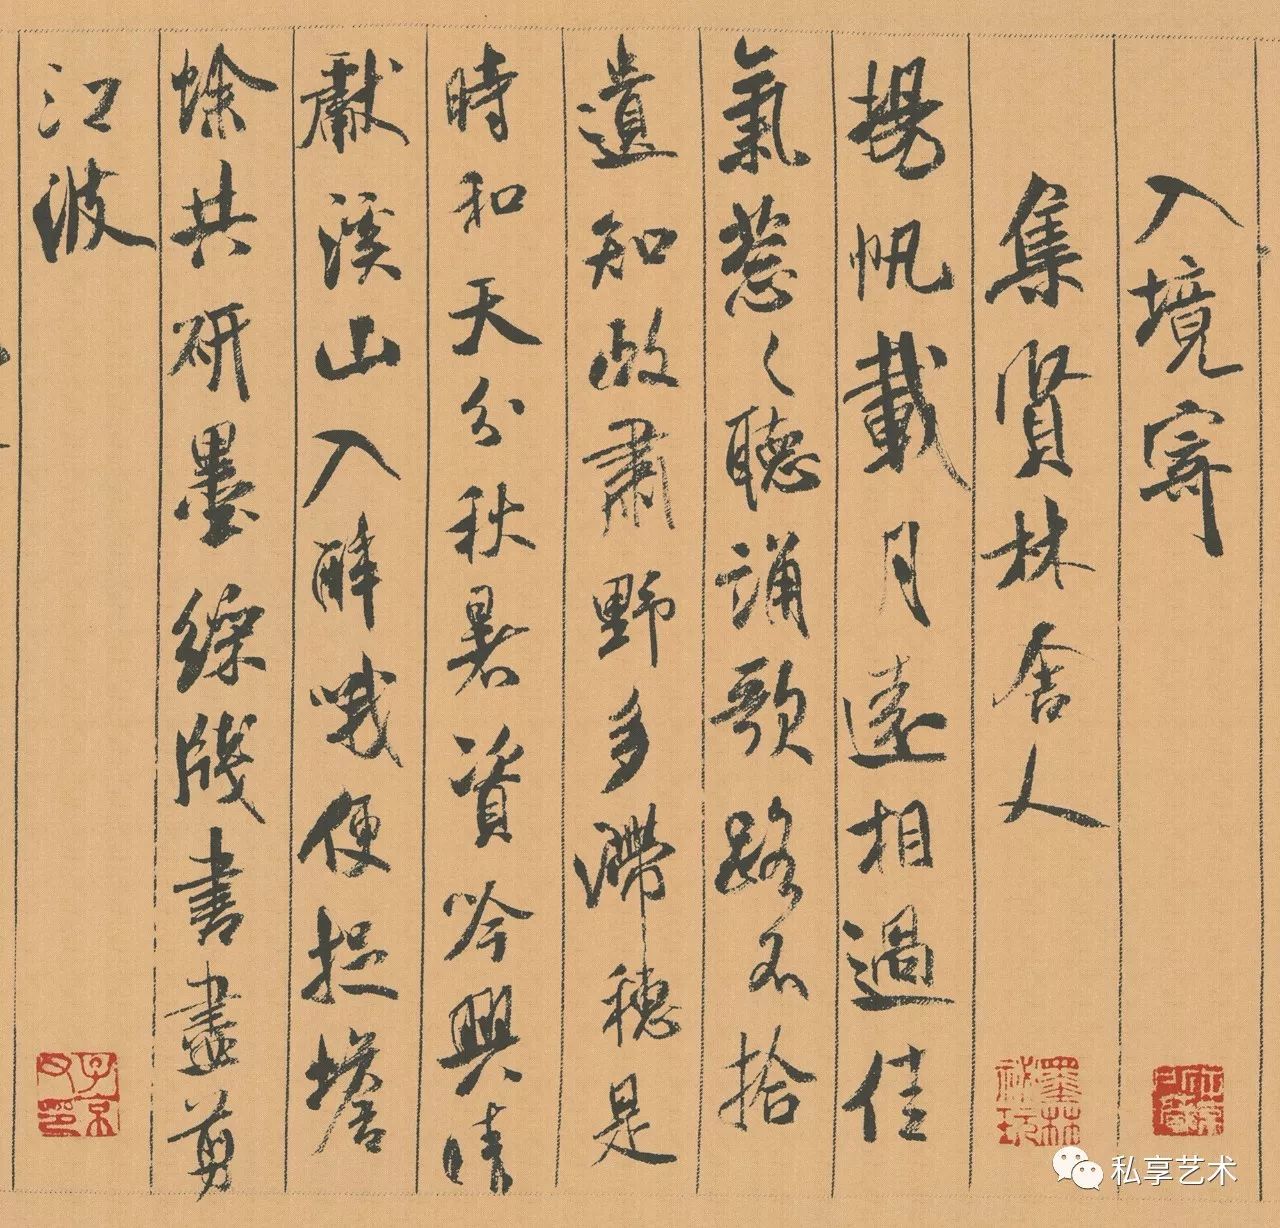 入境寄
集賢林舍人
揚帆載月遠相過佳
氣蔥々聽誦歌路不拾
遺知政肅野多滯穗是
時和天分秋暑資吟興晴
獻溪山入醉哦便捉蟾
蜍共研墨綵牋書盡剪
江波
墨林祕玩
子京父印
私享艺术